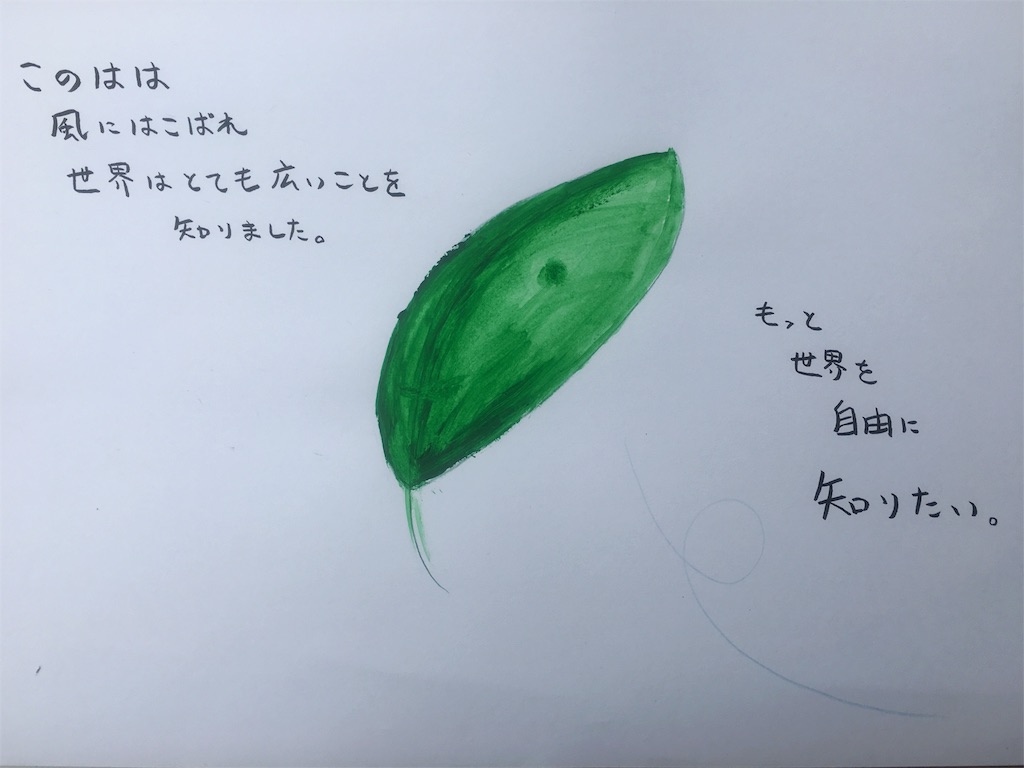 このはは
風にはこばれ
世界はとても広いことを
知りました。
もっと
世界を
自由に
知りたい。